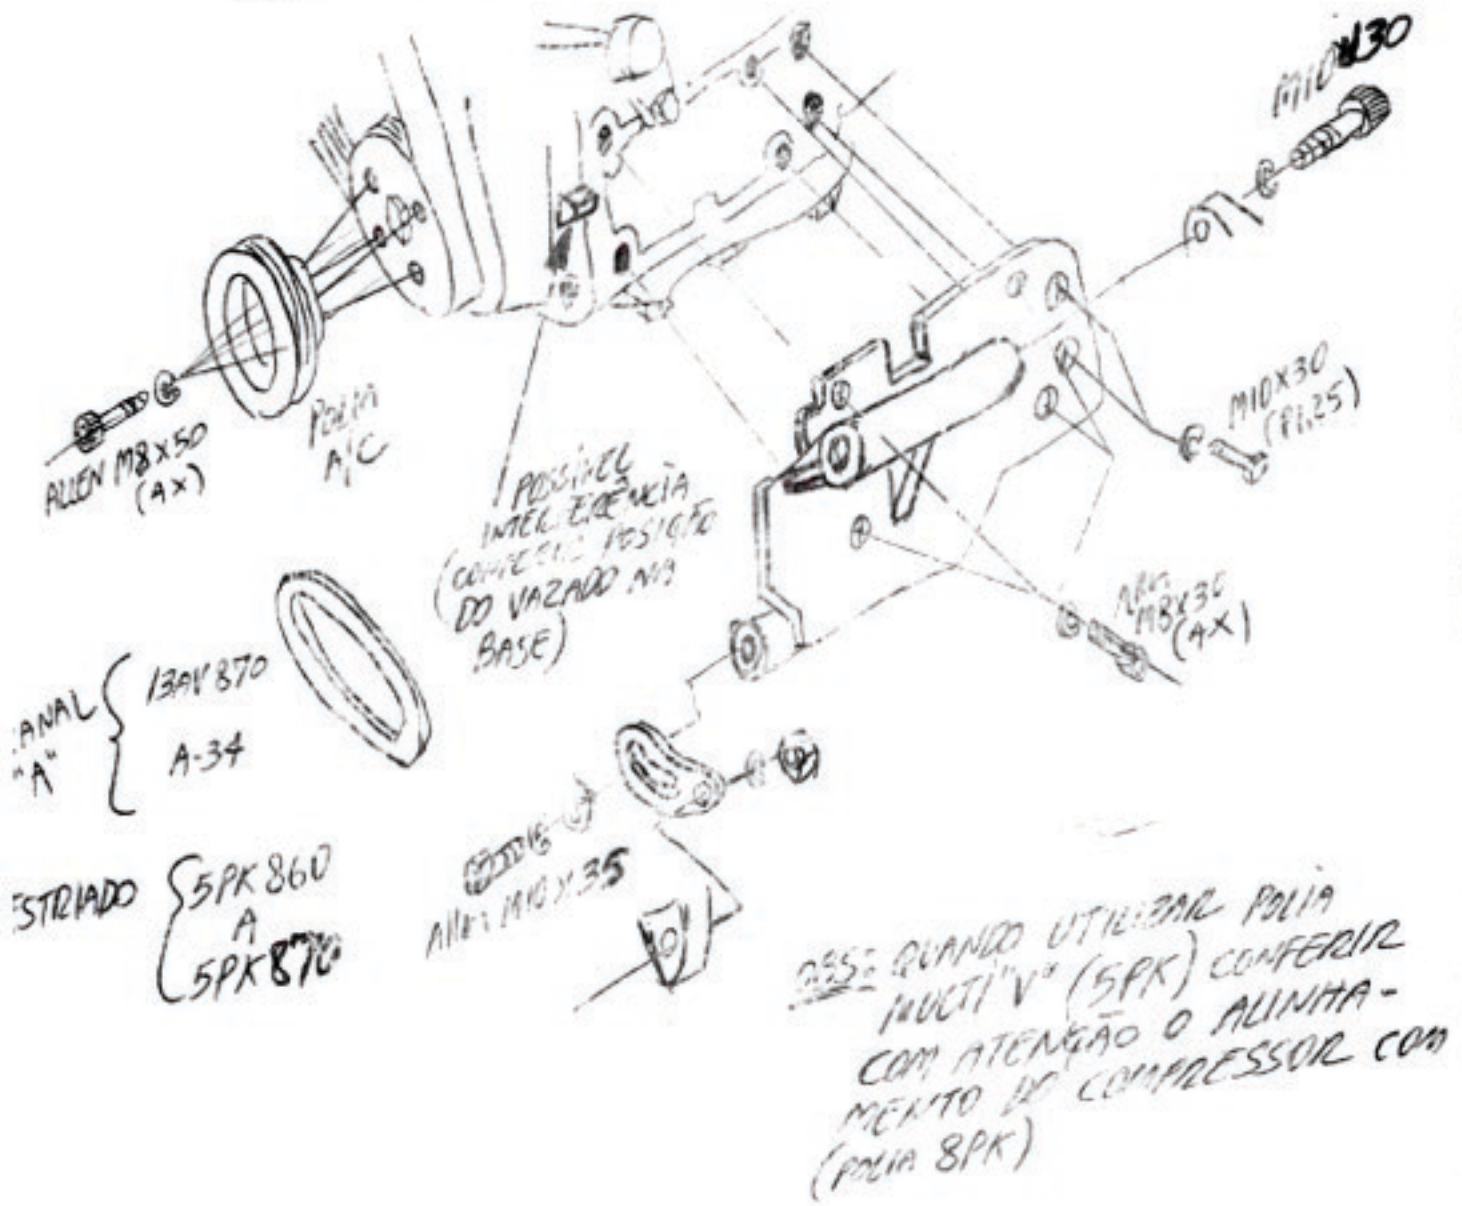 M10X130
ALLEN M8X50
(4X)
POLIA
A/C
POSSÍVEL
INTERFERÊNCIA
(CONFERIR POSIÇÃO
DO VAZADO NA
BASE)
M10X30
(P1,25)
M8X30
(4X)
ANAL
"A"
13AV870
A-34
ESTRIADO
5PK860
A
5PK870
Allen M10X35
OBS: QUANDO UTILIZAR POLIA
MULTI"V" (5PK) CONFERIR
COM ATENÇÃO O ALINHA-
MENTO DO COMPRESSOR COM
(POLIA 8PK)